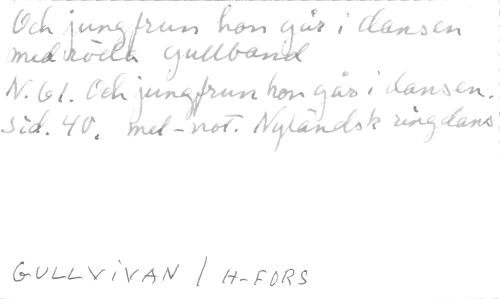 Och jungfrun hon går i dansen
med röda gullband
N. 61. Och jungfrun hon går i dansen.
Sid. 40. mel-not. Nyländsk ringdans
GULLVIVAN / H-FORS